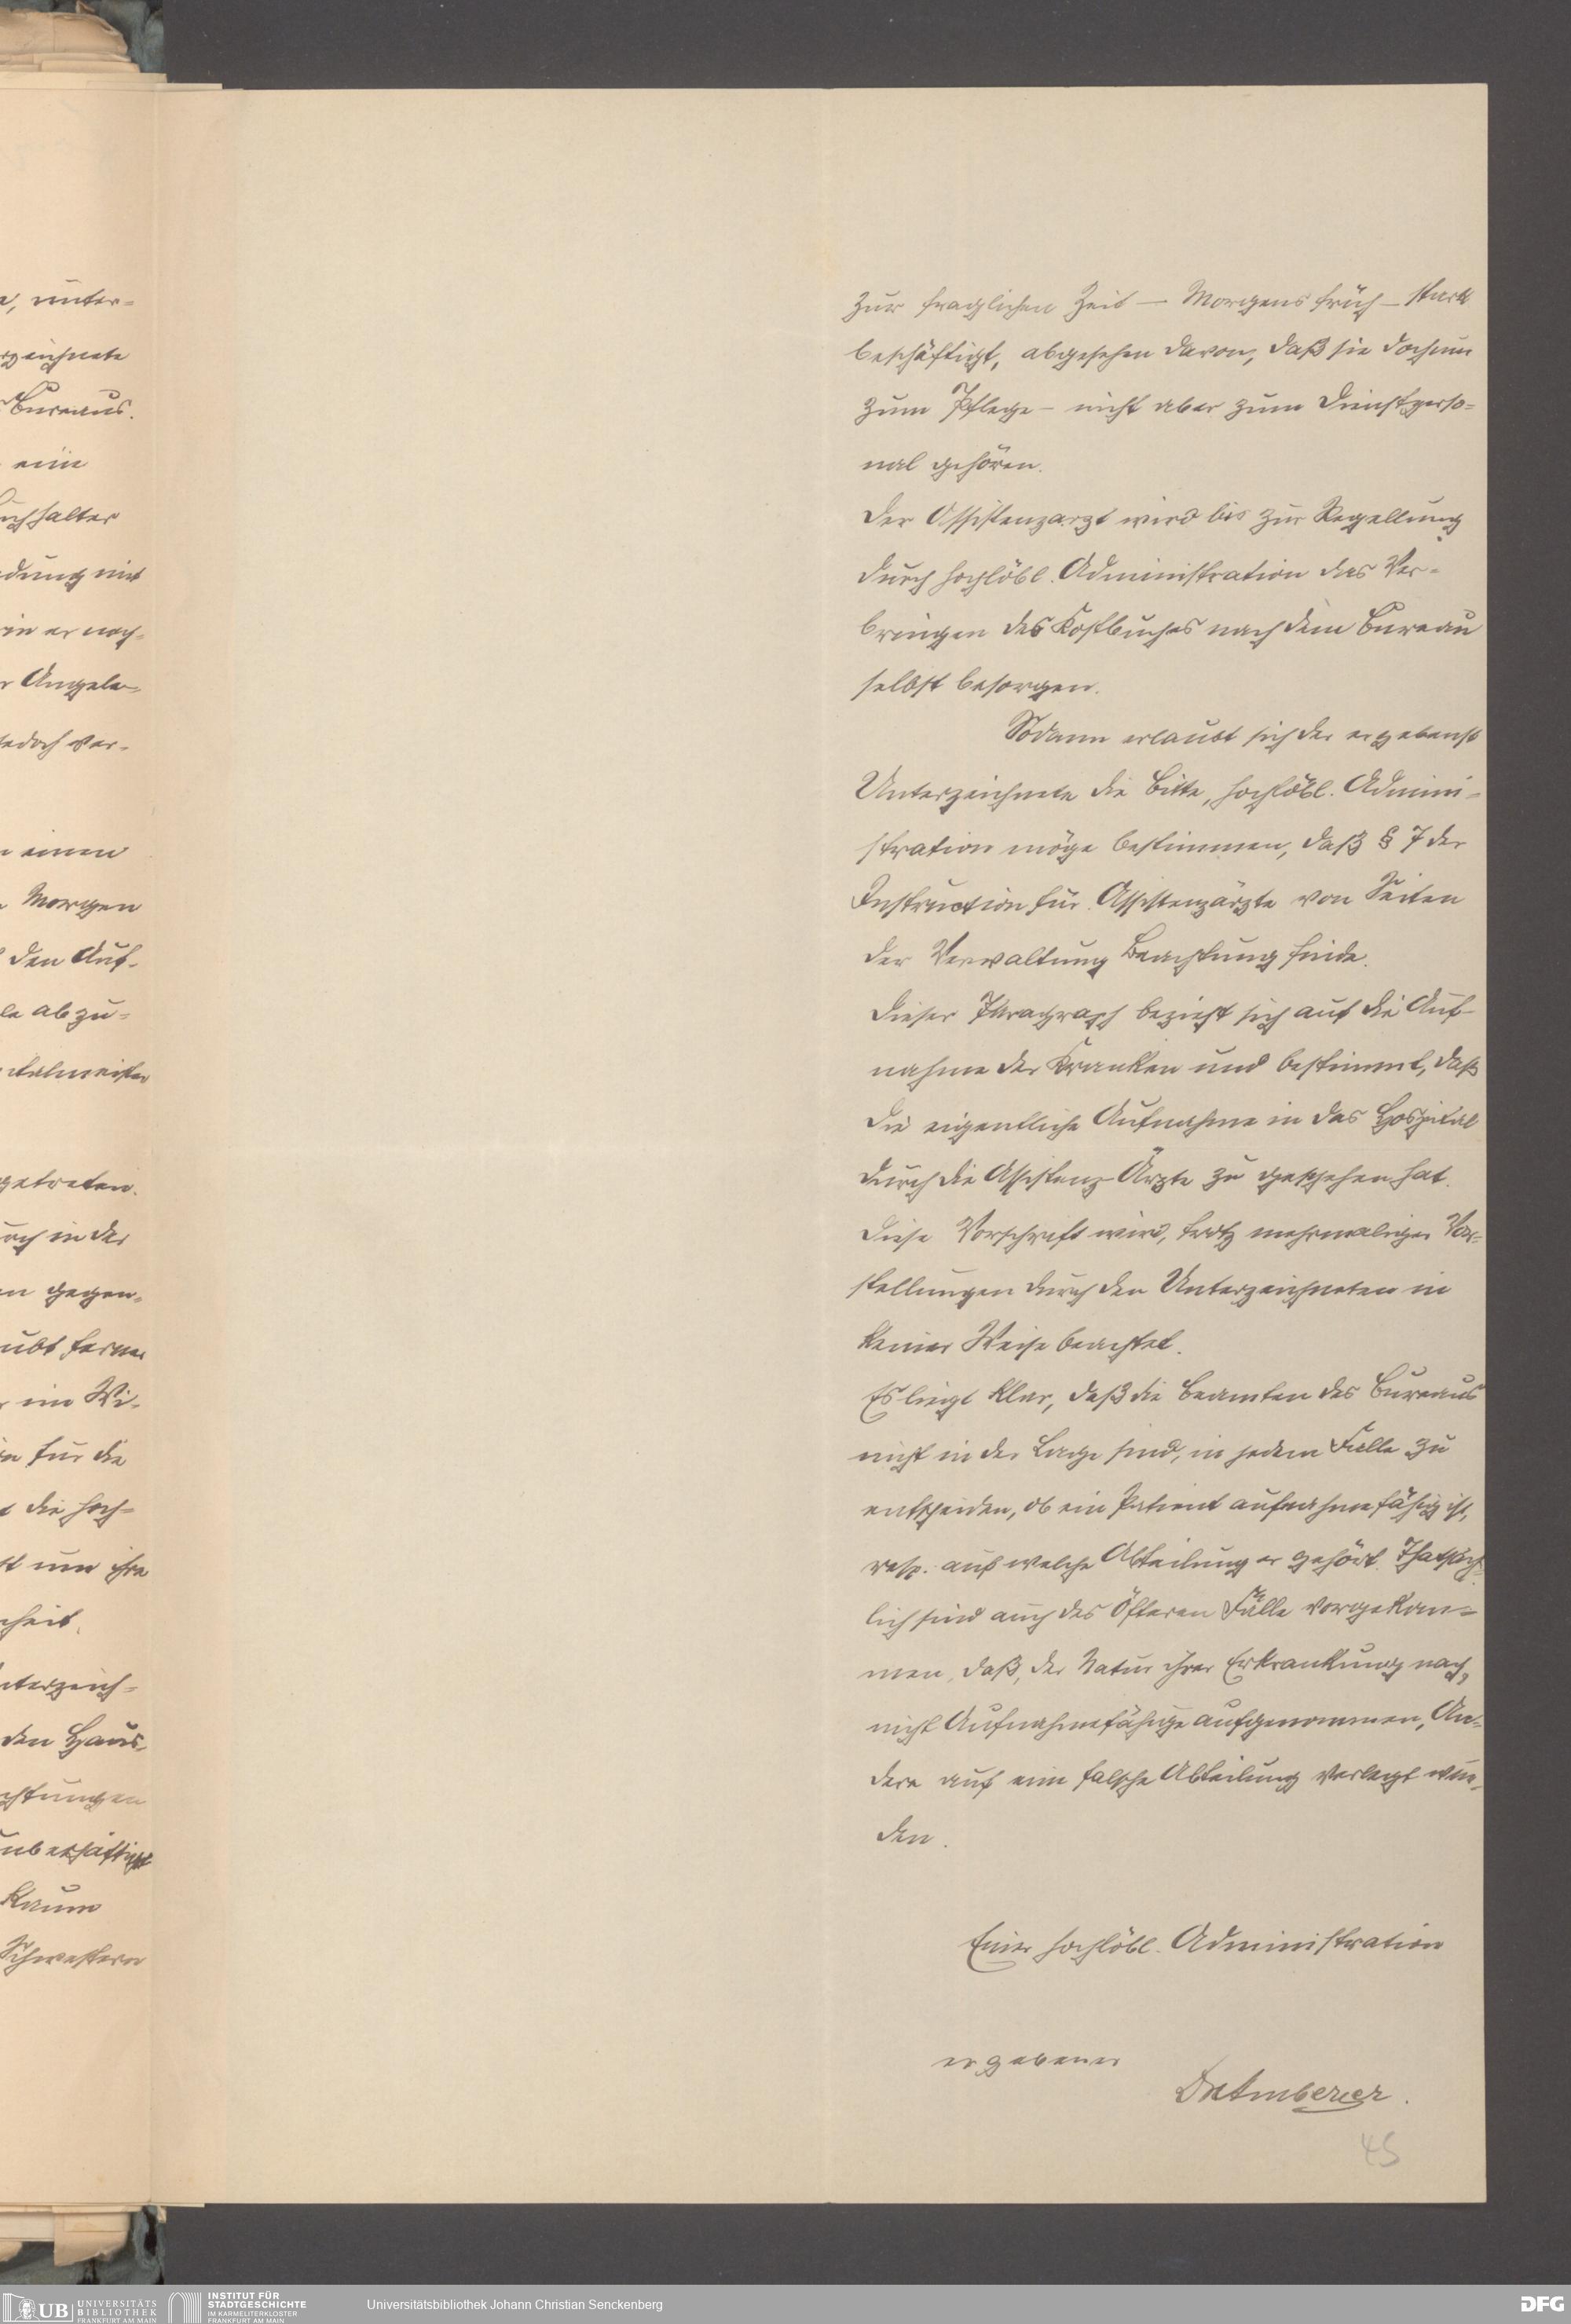 e, unter-
rzeichnete
Bureaus.
eine
uchhalter
dung mit
in er noch-
r Angele-
jedoch ver-
n einem
Morgen
den Auf-
le abzu-
italmeister
getreten.
uch in der
en gegen-
ubt ferner
im Wi-
n für die
t die hoch-
st um ihre
nheit.
nterzeich-
den Haus-
chtungen
unbeschäftigt
Kaum
Schwestern
zur fraglichen Zeit — Morgens früh — stark
beschäftigt, abgesehen davon, daß sie doch nur
zum Pflege- nicht aber zum Dienstperso-
nal gehören.
Der Assistenzarzt wird bis zur Regellung
durch hochlöbl. Administration das Ver-
bringen des Kostbuches nach dem Bureau
selbst besorgen.
Sodann erlaubt sich der ergebenst
Unterzeichnete die Bitte, hochlöbl. Admini-
stration möge bestimmen, daß § 7 der
Instruction für Assistenzärzte von Seiten
der Verwaltung Beachtung finde.
Dieser Paragraph bezieht sich auf die Auf-
nahme der Kranken und bestimmt, daß
die eigentliche Aufnahme in das Hospital
durch die Assistenz-Ärzte zu geschehen hat.
Diese Vorschrift wird, trotz mehrmaliger Vor-
stellungen durch den Unterzeichneten in
keiner Weise beachtet.
Es liegt klar, daß die Beamten des Bureaus
nicht in der Lage sind, in jedem Falle zu
entscheiden, ob ein Patient aufnahmefähig ist,
resp. auf welche Abteilung er gehört. Thatsäch-
lich sind auch des Öfteren Fälle vorgekom-
men, daß, der Natur ihrer Erkrankung nach,
nicht Aufnahmefähige aufgenommen, An-
dere auf eine falsche Abteilung verlegt wur-
den.
Einer hochlöbl. Administration
ergebener
45
UB UNIVERSITÄTS
BIBLIOTHEK
FRANKFURT AM MAIN
INSTITUT FÜR
STADTGESCHICHTE
IM KARMELITERKLOSTER
FRANKFURT AM MAIN
Universitätsbibliothek Johann Christian Senckenberg
DFG